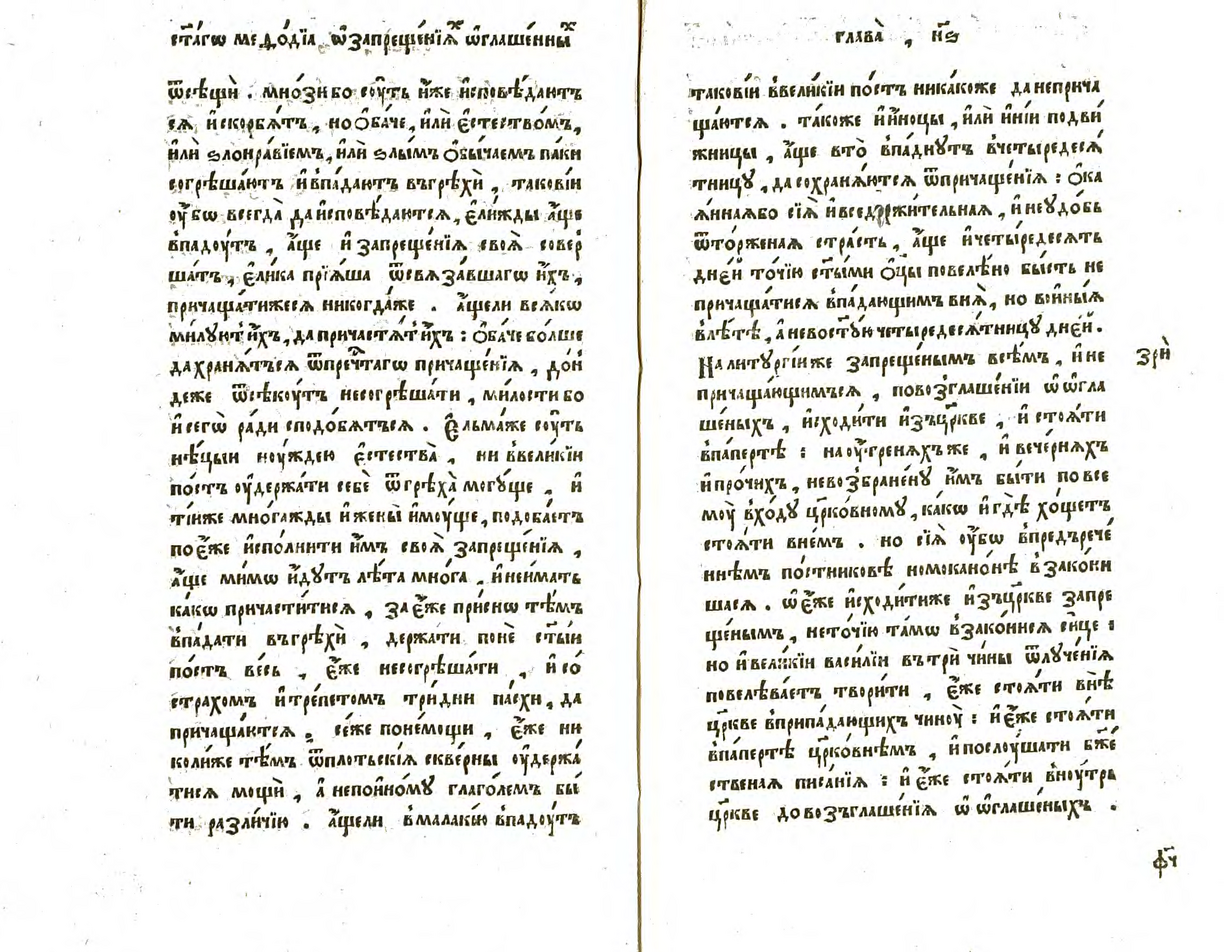 ст҃а́гѡ меѳо́дїѧ ѡ҆запреще́нїѧⷯ ѡ҆глаше́нныⷯ
ѿсѣщѝ . мно́зи бо сꙋ́ть и҆́же и҆сповѣ́даютъ
сѧ и҆скорбѧ́тъ , но ѻ҆ба́че , и҆лѝ є҆стество́мъ ,
и҆лѝ ѕлонра́вїемъ , и҆лѝ ѕлы́мъ ѻ҆бы́чаемъ па́ки
согрѣша́ютъ и҆впа́даютъ въгрѣхѝ , такові́и
ᲂу҆́бѡ всегда̀ да и҆сповѣ́даютсѧ , є҆ли́жды а҆́ще
впадꙋ́тъ , а҆́ще и҆ запреще́нїѧ своѧ̀ совер
ша́тъ , є҆ли́ка прїѧ́ша ѿсвѧза́вшагѡ и҆́хъ ,
причаща́тижесѧ никогда́же . а҆́щели всѧ́кѡ
ми́лꙋютъ и҆́хъ , да причастѧ́тъ и҆́хъ : ѻ҆ба́че бо́лше
да хранѧ́тъсѧ ѿпречⷭ҇тагѡ причаще́нїѧ , до́н
деже ѿсѣкꙋ́тъ несогрѣша́ти , ми́лости бо
и҆ сегѡ̀ ра́ди сподо́бѧтъсѧ . Є҆льма́же сꙋ́ть
нѣ́цыи нꙋ́ждею є҆стества̀ , ни ввели́кїи
по́стъ ᲂу҆держа́ти себѐ ѿгрѣха̀ могꙋ́ще , и҆
ті́иже мно́гажды и҆ жены̀ и҆мꙋ́ще , подоба́етъ
по є҆́же и҆спо́лнити и҆̀мъ своѧ̀ запреще́нїѧ ,
а҆́ще ми́мѡ и҆́дꙋтъ лѣ́та мно́га , и҆неи́мать
ка́кѡ причасти́тисѧ , за є҆́же при́снѡ тѣ́мъ
впа́дати въгрѣхѝ , держа́ти понѐ ст҃ы́и
по́стъ ве́сь , є҆́же несогрѣша́ти , и҆ со́
стра́хомъ и҆тре́петомъ три́дни па́схи , да
причаща́ютсѧ . се́же поне́мощи , є҆́же ни
коли́же тѣ́мъ ѿпло́тьскїѧ скве́рны ᲂу҆держа́
тисѧ мощѝ , а҆ непоино́мꙋ глаго́лемъ бы́
ти разли́чїю . а҆́щели вмалакі́ю впадꙋ́тъ
глава̀ , н҃ѕ
такові́и ввели́кїи по́стъ ника́коже да неприча
ща́ютсѧ . та́коже и҆ и҆́ноцы , и҆лѝ и҆ні́и подви́
жницы , а҆́ще вто̀ впаднꙋ́тъ вчетыредесѧ́
тницꙋ , да сохранѧ́ютсѧ ѿпричаще́нїѧ : ѻ҆ка
ѧ́ннаѧбо сїѧ̀ и҆вседержи́тельнаѧ , и҆неꙋдо́бь
ѿто́рженаѧ стра́сть , а҆́ще и҆четы́редесѧть
дне́й то́чїю ст҃ы́ми ѻ҆ц҃ы̀ повелѣ́но бы́сть не
причаща́тисѧ впа́дающимъ внѧ̀ , но во и҆ны́ѧ
влѣ́тѣ , а҆ невост҃ꙋ́ю четыредесѧ́тницꙋ дне́й .
На литꙋргі́иже запреще́нымъ всѣ́мъ , и҆ не
причаща́ющимъсѧ , повозглаше́нїи ѡ҆ ѡ҆гла
ше́ныхъ , и҆сходи́ти и҆зъцр҃кве , и҆ стоѧ́ти
впа́пертѣ : на ᲂу҆́тренѧхъже , и҆ вече́рнѧхъ
и҆про́чихъ , невозбране́нꙋ и҆̀мъ бы́ти по все
мꙋ̀ вхо́дꙋ цр҃ко́вномꙋ , ка́кѡ и҆гдѣ̀ хо́щетъ
стоѧ́ти вне́мъ . но сїѧ̀ ᲂу҆́бѡ впредърече́
ннѣмъ по́стниковѣ номокано́нѣ взако́ни
шасѧ . ѡ҆ є҆́же и҆сходи́тиже и҆зъцр҃кве запре
ще́нымъ , нето́чїю та́мѡ взако́нисѧ си́це :
но и҆вели́кїи васи́лїи въ трѝ чи́ны ѿлꙋче́нїѧ
повелѣва́етъ твори́ти , є҆́же стоѧ́ти внѣ̀
цр҃кве вприпа́дающихъ чи́нꙋ̀ : и҆ є҆́же стоѧ́ти
впа́пертѣ цр҃ко́внѣмъ , и҆послꙋ́шати бж҃е́
ственаѧ писа́нїѧ : и҆ є҆́же стоѧ́ти внꙋ́трь
цр҃кве довозъглаше́нїѧ ѡ҆ ѡ҆глаше́ныхъ .
зрѝ
ф҃ч